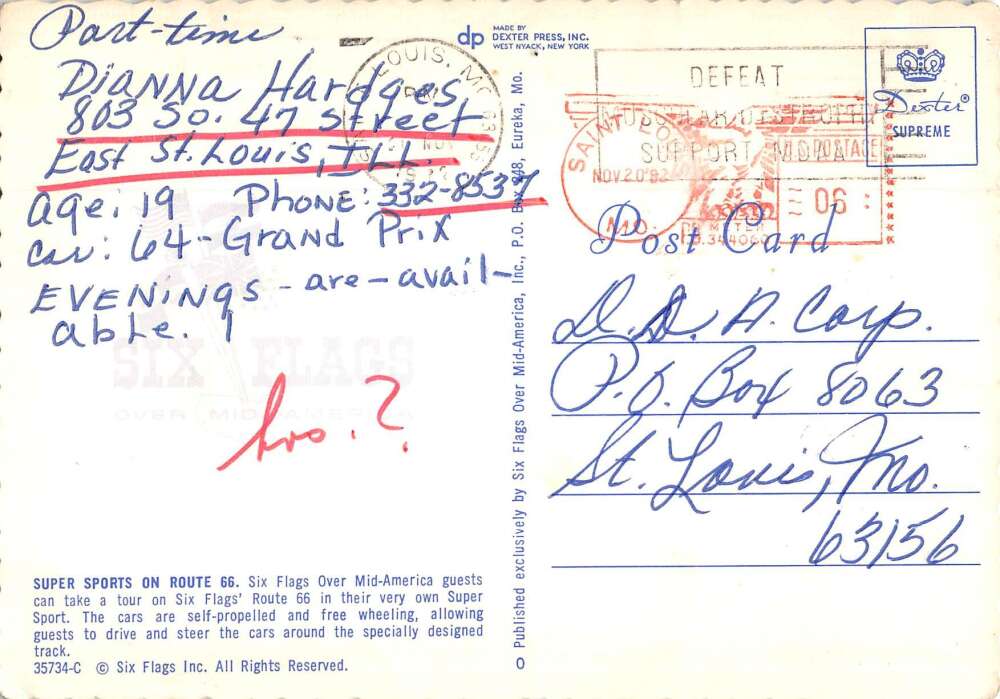 Part-time
Dianna Hardges
803 So. 47 Street
East St. Louis, ILL.
age: 19 Phone: 332-8537
car: 64-Grand Prix
EVENINGS - are - avail-
able. 1
hrs. ?
SIX FLAGS
OVER MID-AMERICA
SUPER SPORTS ON ROUTE 66. Six Flags Over Mid-America guests
can take a tour on Six Flags' Route 66 in their very own Super
Sport. The cars are self-propelled and free wheeling, allowing
guests to drive and steer the cars around the specially designed
track.
35734-C © Six Flags Inc. All Rights Reserved.
dp MADE BY
DEXTER PRESS, INC.
WEST NYACK, NEW YORK
Published exclusively by Six Flags Over Mid-America, Inc., P.O. Box 848, Eureka, Mo.
LOUIS, MO
DEFEAT
MUSCULAR DYSTROPHY
SUPPORT MDAA
SAINT LOUIS
MO.
NOV.20'82
U.S. POSTAGE
06
PB METER
Dexter®
SUPREME
Post Card
D.D.A. Corp.
P.O. Box 8063
St. Louis, Mo.
63156